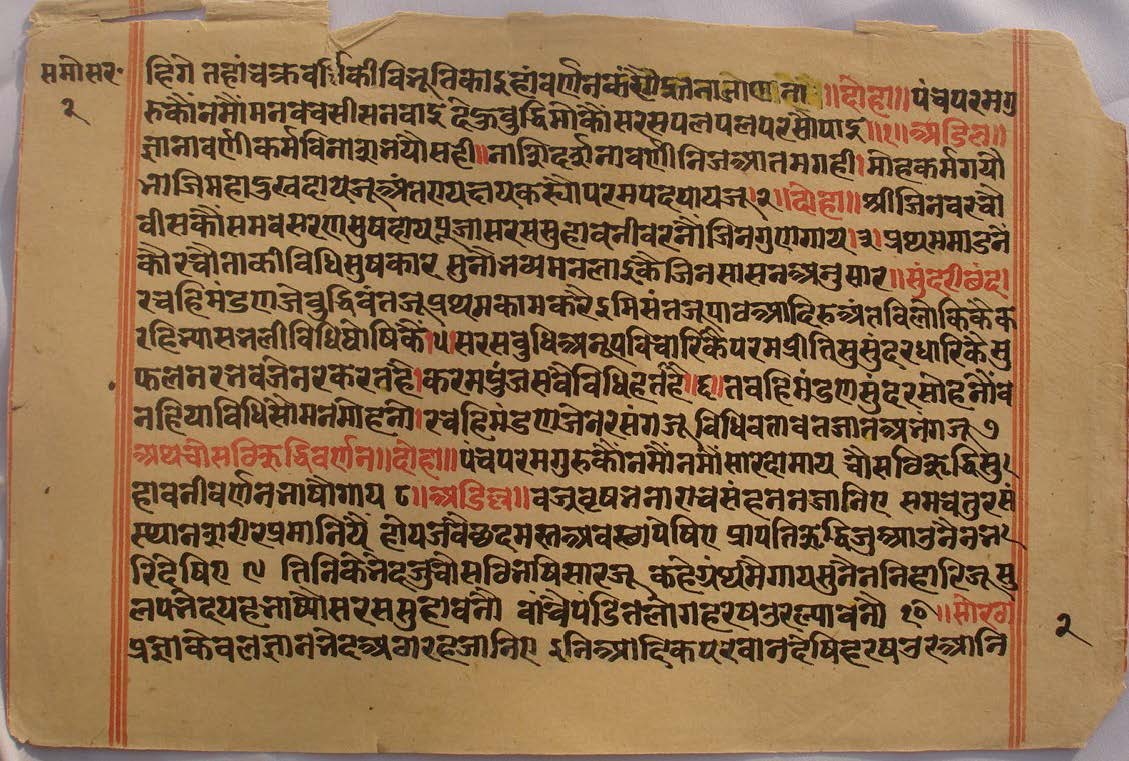 समोसर॰
२
हिगे तहां चक्रवर्ति की विभूतिका इहां वर्णन ॥दोहा॥ पंचपरमगु
रुकौं नमौं मनवचसीसनवाइ देऊबुद्धिमोकौं सरसपलपलपरसौंपाइ ॥१॥अडिल्ल॥
ज्ञानावर्णीकर्मविनाशनयौसही॥नाशिदर्शनावर्णीनिजआतमगही।मोहकर्मगयौ
भाजिमहादुखदायजूअंतरायक्षयकस्यौपरमपदपायजू।२॥दोहा॥श्रीजिनवरचौ
वीसकौसमवसरणसुषदायपूजासरससुहावनीवरनौंजिनगुणगाय।३।प्रथममाडनै
कौरचौताकीविधिसुषकार सुनौभव्यमनलाइकैजिनसासनअनुसार॥सुंदरीछंद॥
रचहिमंडणजेबुद्धिवंतजूप्रथमकामकरैइमिसंतजूपावआदिरुअंतविलोकिकैक
रहिन्यासभलीविधिघोषिकै।५।सरसबुधिअनूपविचारिकैपरमप्रीतिसुसुंदरधारिकैसु
फलनरभवजेनरकरतहै।करमपुंजसवैविधिहर्तहै।६।तवहिमंडणसुंदरसोहनौंव
नहियाविधिसौंमनमोहनौ।रचहिमंडणजेनरसंगजू विधिवतावतजानअभंगजू ७
अथचौसठिऋद्धिवर्णन॥दोहा॥पंचपरमगुरुकौनमौंनमौंसारदामाय चौसठिऋद्धिसु
हावनीवर्णनभाषौगाय ८॥अडिल्ल॥वज्रवृषभनाराचसंहननजानिए समचतुरसं
स्थानशरीरप्रमानियैं होयजवैछदमस्तअवस्थापेषिए प्रापतिऋद्धिजुआठनैनभ
रिदेषिए ९ तिनिकेभेदजुचौसठिभाषिसारजू कहेग्रंथमैगायसुनैननिहारिजू सु
लपभेदयहभाष्यौसरससुहावनौ वांचैपंडितलोगहरषउरल्यावनौ १० ॥सोरठा
प्रज्ञाकेवलज्ञानभेदअठारहजानिए इनिआदिकपरवानदेषिहरषउरआनि
२